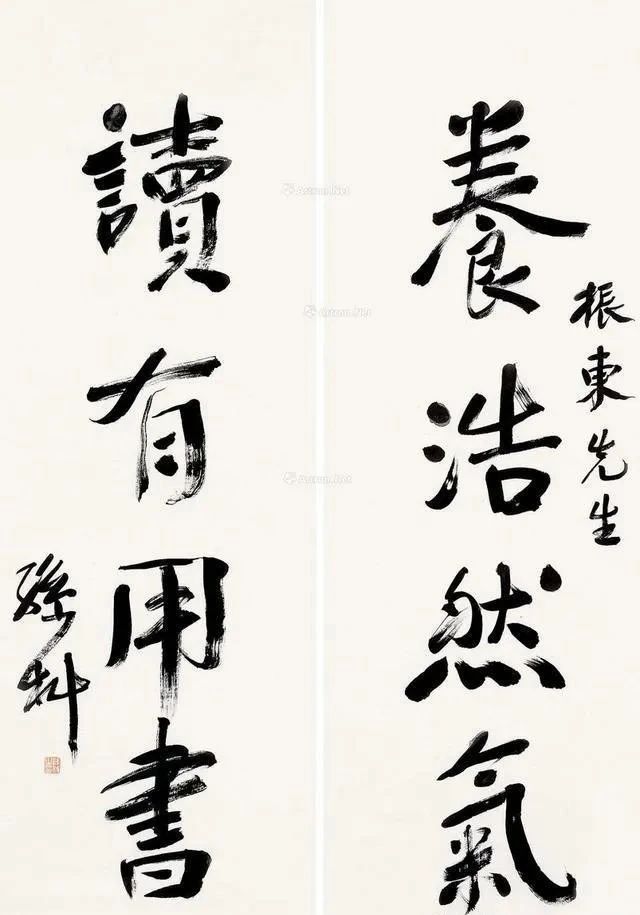 養浩然氣
振東先生
讀有用書
孫科
Artron.Net
Artron.Net
Artron.Net